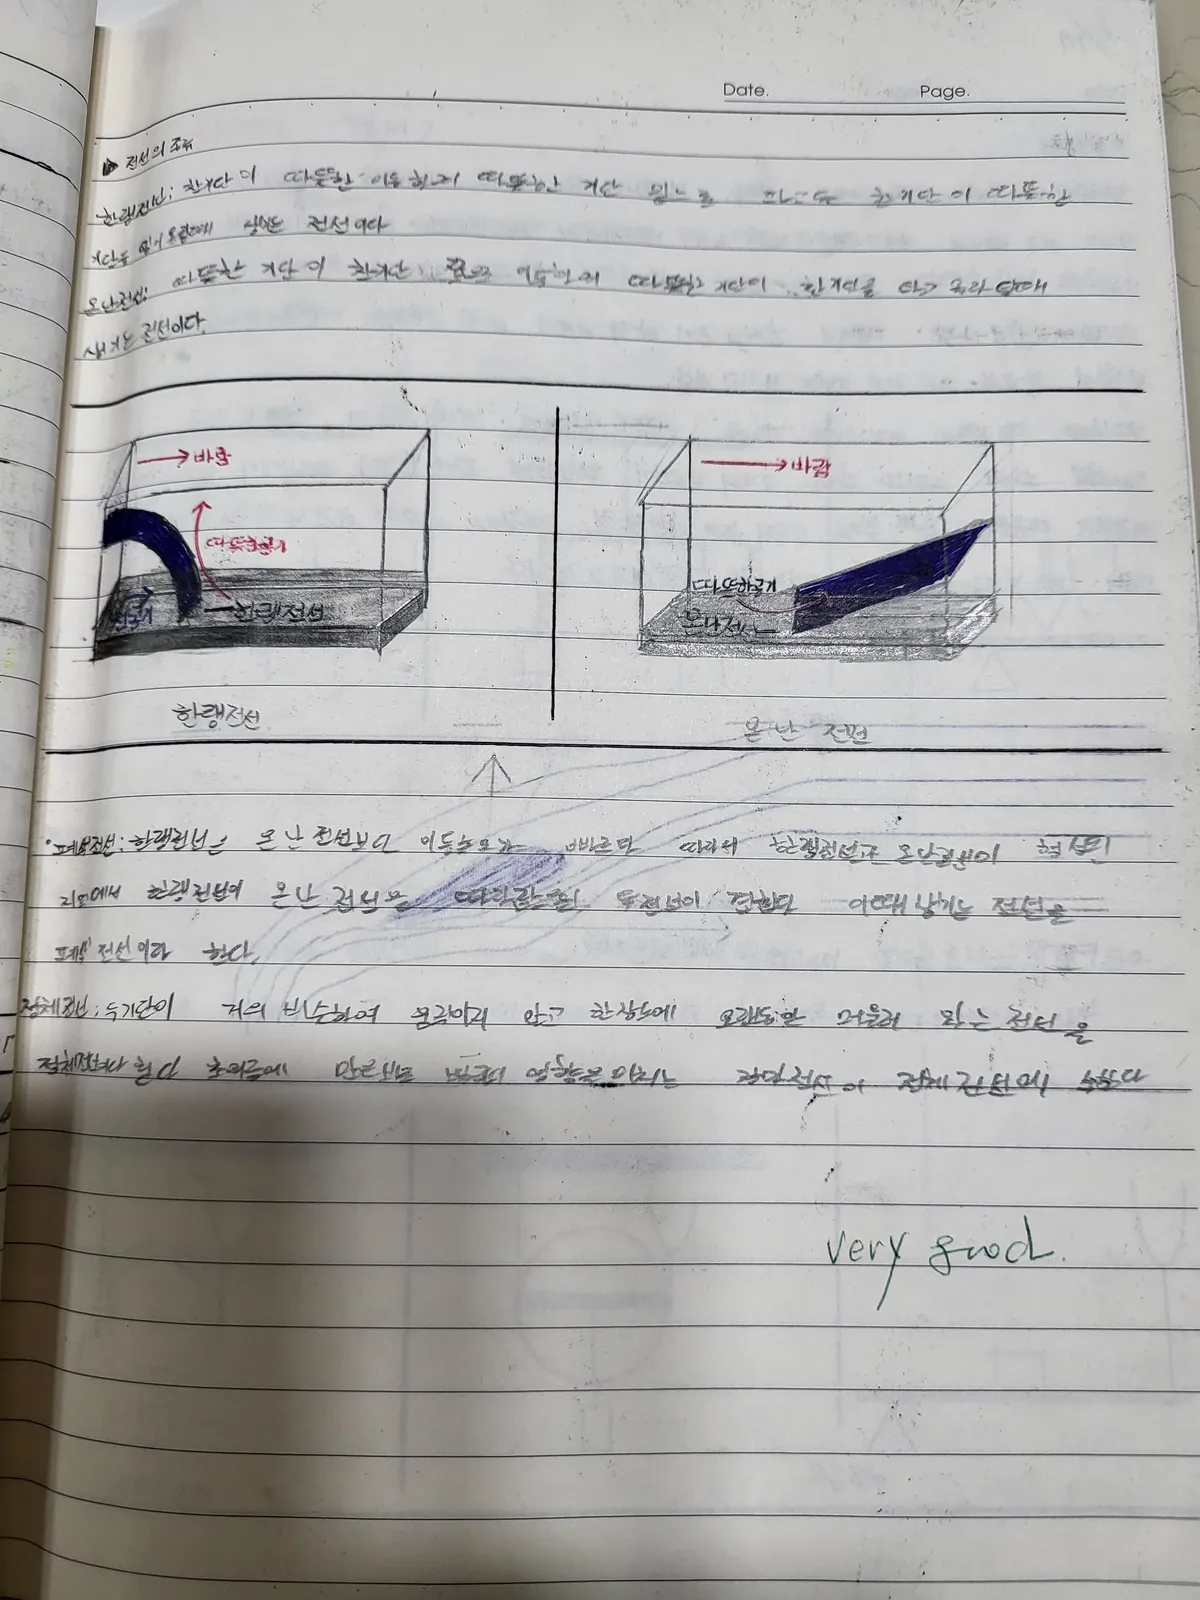 Date. Page.
▶ 전선의 종류
한랭전선: 찬기단이 따뜻한 이동하여 따뜻한 기단 밑으로 파고드 찬기단이 따뜻한
기단을 밀어 올릴때 생기는 전선이다
온난전선: 따뜻한 기단이 찬기단 쪽으로 이동하여 따뜻한 기단이 찬기단을 타고 올라 갈때
생기는 전선이다.
→ 바람
따뜻한공기
찬공기
한랭전선
한랭전선
→ 바람
따뜻한공기
온난전선
온난 전선
폐색전선: 한랭전선은 온난전선보다 이동속도가 빠르다 따라서 한랭전선과 온난전선이 형성된
한랭전선이 온난 전선을 두전선이 이때 생기는 전선을
폐색 전선이라 한다.
정체전선: 두기단이 거의 비슷하여 움직이지 않고 한장소에 오랫동안 머물러 있는 전선을
정체전선이라 한다 초여름에 영향을 미치는 장마전선이 정체전선에 속한다
very good.